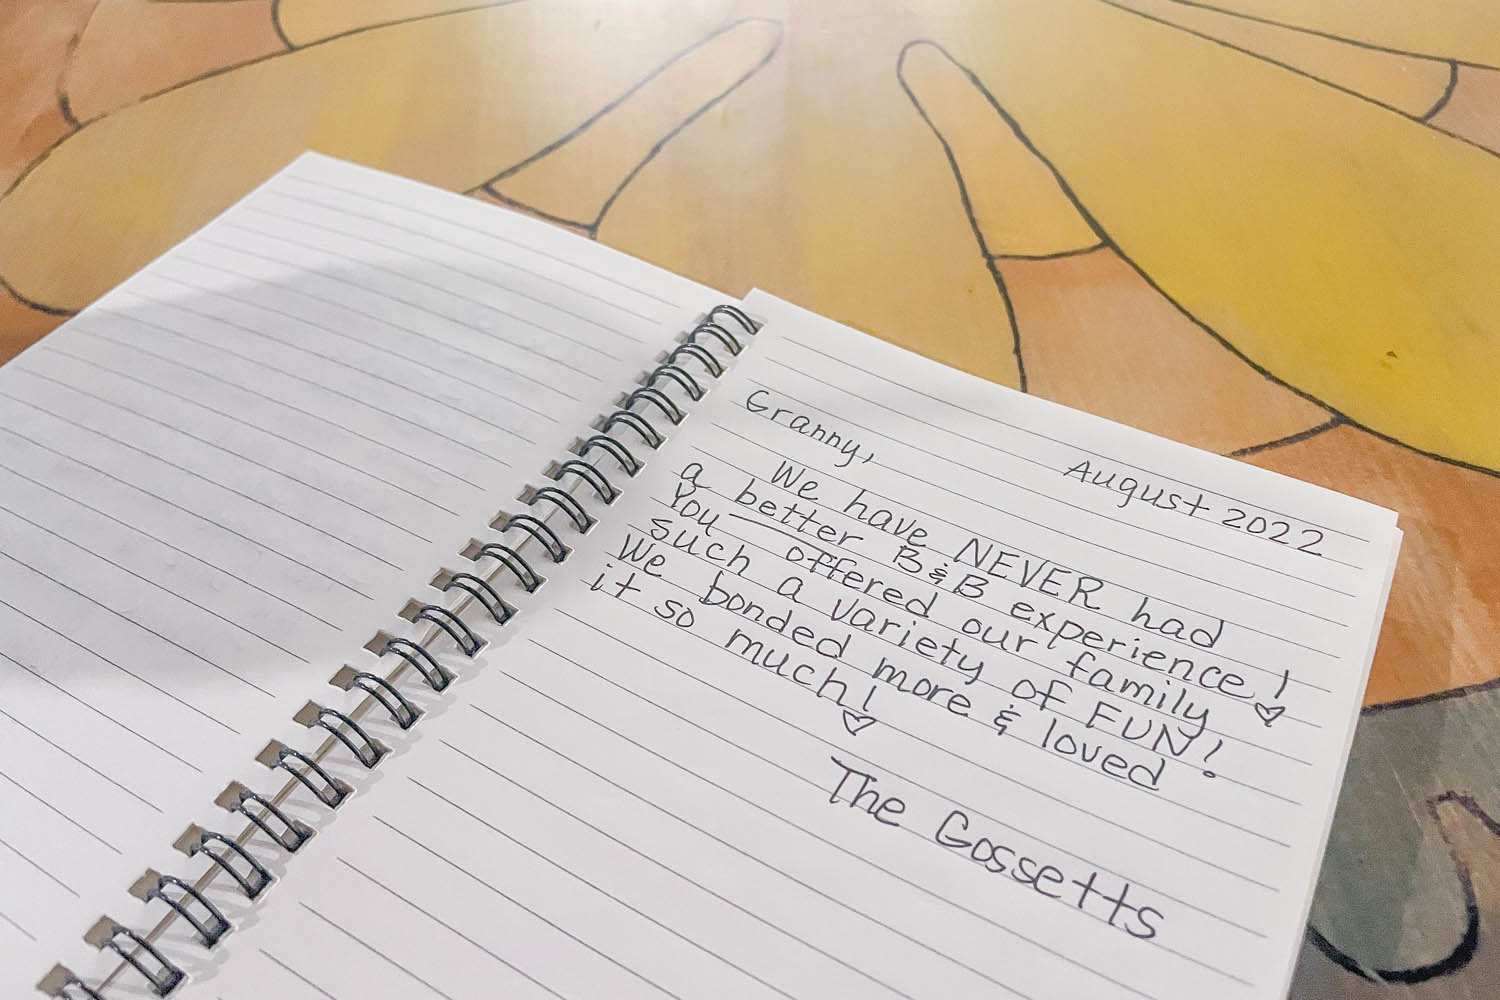 August 2022
Granny,
We have NEVER had
a better B&B experience!
You offered our family
such a variety of FUN!
We bonded more & loved
it so much!
The Gossetts